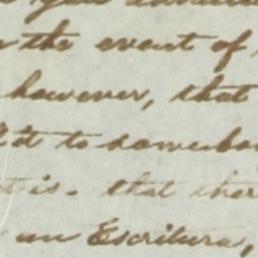 the event of
however, that
to somebo
is. that ther
an Escritura,